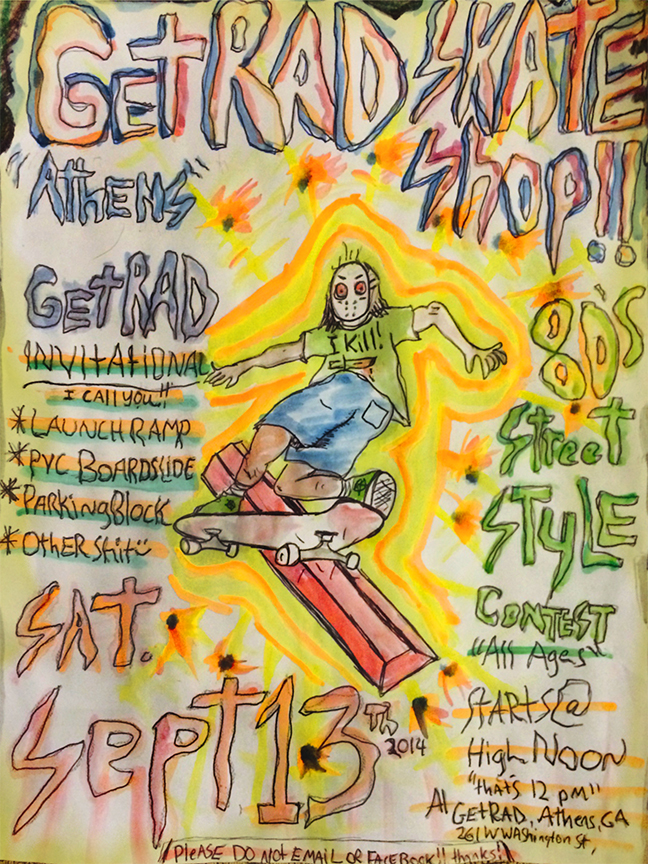 GEt RAD SKATE
ShOP!!!
"AthENS"
GEt RAD
INVItAtIONAL
I CALL YOU!!
*LAUNCH RAMP
*PVC BOARDSLIDE
*PARKINGBLOCK
*OtHER Shit
I Kill!
80'S
StreeT
STyLE
CONTEST
"All Ages"
SAT.
Sept 13TH
2014
STARTS@
High NOON
"that's 12 pm"
At GEtRAD, Athens, GA
261 W WAShington St,
PLEASE DO NOt EMAIL OR FACEBOOK!! thanks!